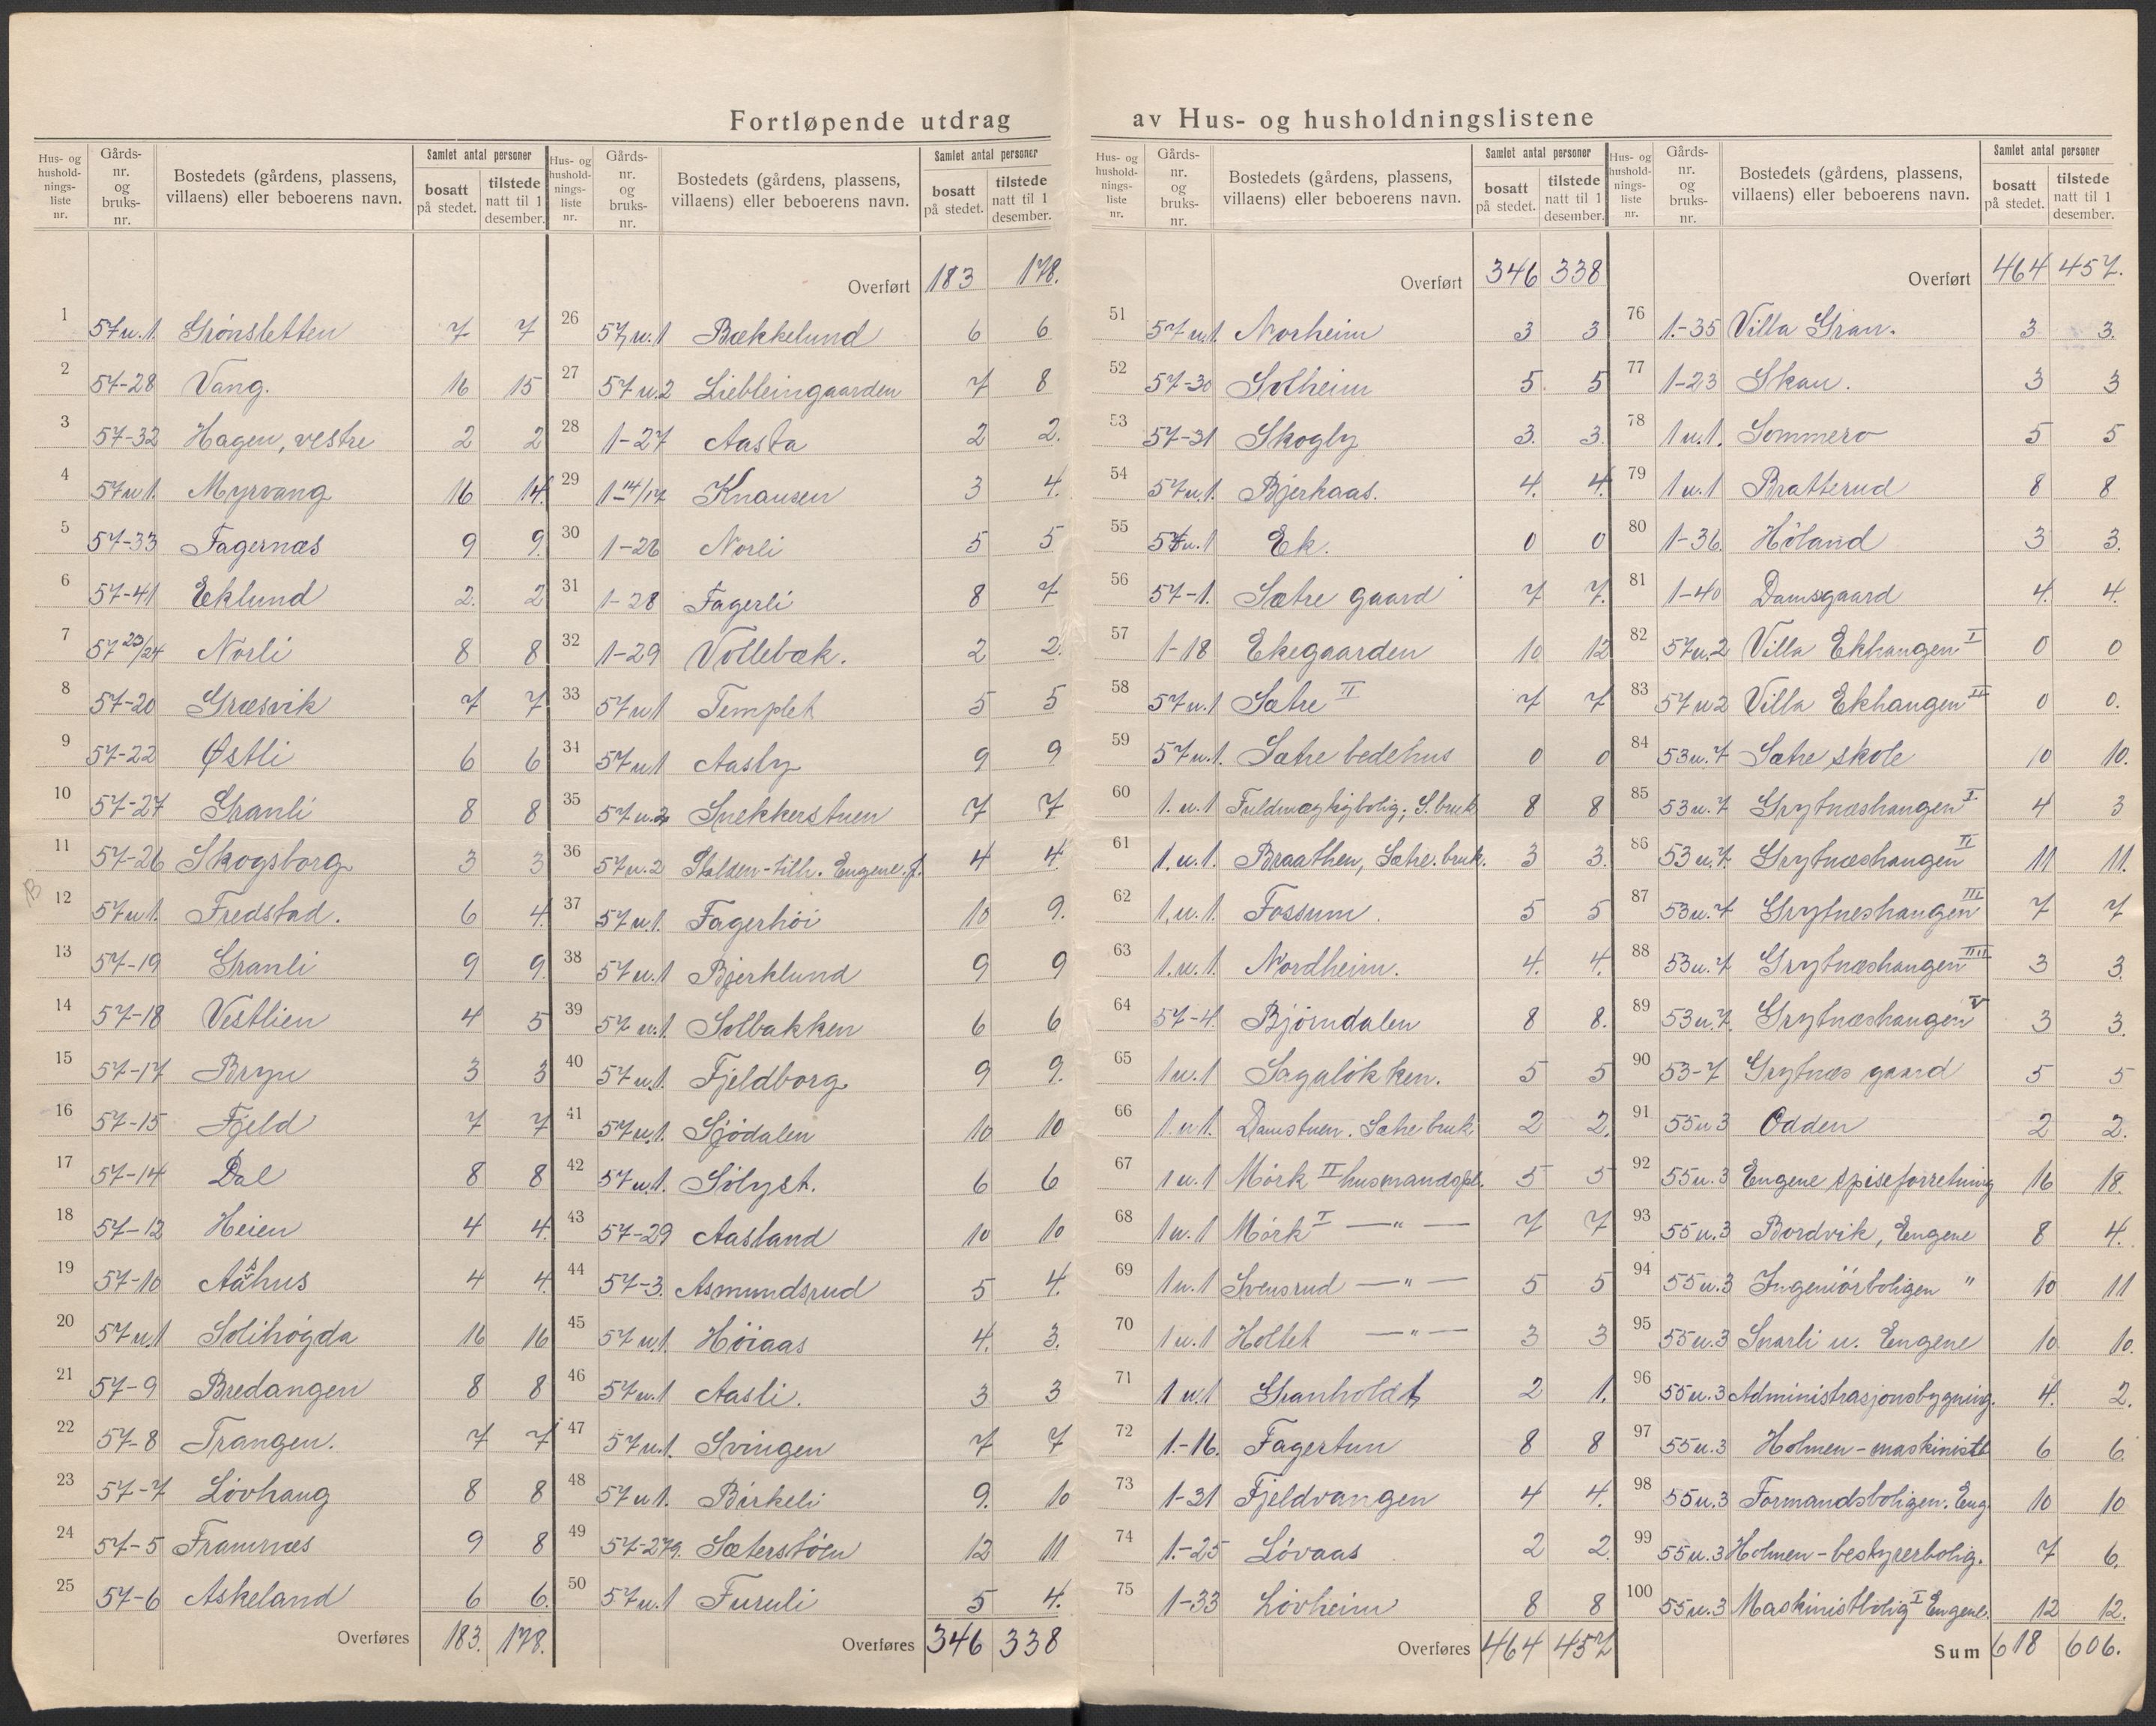 Fortløpende utdrag av Hus- og husholdningslistene
Hus- og husholdnings-liste nr. | Gårds-nr. og bruks-nr. | Bostedets (gårdens, plassens, villaens) eller beboerens navn. | Samlet antal personer bosatt på stedet. | tilstede natt til 1 desember.
1 57 u.1. Grönsletten 7 7
2 57-28 Vang. 16 15
3 57-32 Hagen, vestre 2 2
4 57 u 1. Myrvang 16 14.
5 57-33 Fagernæs 9 9.
6 57-41 Eklund 2. 2
7 57 23/24 Norli 8 8
8 57-20 Græsvik 7 7
9 57-22 Østli 6 6
10 57-27 Granli 8 8
11 57-26 Skogsborg 3 3
12 57 u 1. Fredstad. 6 4.
13 57-19 Granli 9 9.
14 57-18 Vestlien 4 5
15 57-17 Bryn 3 3
16 57-15 Fjeld 7 7
17 57-14 Dal 8 8
18 57-12 Heien 4 4.
19 57-10 Aashus 4 4.
20 57 u.1 Solihögda 16 16
21 57-9 Bredangen 8 8
22 57-8 Trangen. 7 7
23 57-7 Lövhaug 8 8
24 57-5 Framnæs 9 8
25 57-6 Askeland 6 6.
Overføres 183. 178.
Overført 183 178.
26 57 u.1 Bækkelund 6 6
27 57 u.2 Liebleingaarden 7 8
28 1-27 Aasta 2 2.
29 1-14/17 Knausen 3 4.
30 1-26 Norli 5 5
31 1-28 Fagerli 8 7
32 1-29 Vollebæk. 2 2.
33 57 u 1 Templet 5 5
34 57 u 1 Aasly 9 9
35 57 u.2 Snekkerstuen 7 7
36 57 u.2 Stalden-tilh. Engene. f. 4 4.
37 57 u.1. Fagerhöi 10 9.
38 57 u.1 Bjerklund 9 9
39 57 u.1. Solbakken 6 6
40 57 u.1. Fjeldborg 9 9.
41 57 u.1. Sjödalen 10 10
42 57 u.1. Sölyst. 6 6
43 57-29 Aasland 10 10
44 57-3. Asmundsrud 5 4.
45 57 u.1 Höiaas 4. 3.
46 57 u.1 Aasli. 3 3
47 57 u.1. Svingen 7 7
48 57 u 1. Birkeli 9. 10
49 57-279. Sæterstöen 12 11
50 57 u.1 Furuli 5 4.
Overføres 346 338
Overført 346 338
51 57 u.1. Norheim 3 3
52 57-30 Solheim 5. 5
53 57-31 Skogly 3. 3.
54 57 u.1. Bjerkaas. 4. 4.
55 57 u.1 Ek. 0 0
56 57-1. Sætre gaard 7 7.
57 1-18 Ekegaarden 10 12
58 57 u.1 Sætre II 7 7
59 57 u.1. Sætre bedehus 0 0
60 1. u.1 Fuldmægtigbolig; S. bruk 8 8
61 1. u.1. Braathen, Sætre. bruk. 3 3.
62 1. u.1. Fossum. 5 5
63 1. u.1. Nordheim. 4. 4.
64 57-4. Björndalen 8 8.
65 1 u.1 Sagalökken. 5 5
66 1. u 1. Damstuen. Sætre bruk 2 2.
67 1 u.1 Mörk II husmandspl. 5 5
68 1 u.1 Mörk I —"— 7 7
69 1 u.1 Svensrud —"— 5 5
70 1 u.1 Holtet —"— 3 3
71 1 u.1 Granholdt 2 1.
72 1.-16. Fagertun 8 8
73 1-21 Fjeldvangen 4 4.
74 1.-25 Lövaas 2 2.
75 1-33 Lövheim 8 8
Overføres 464 457
Overført 464 457.
76 1.-35 Villa Gran. 3 3.
77 1-23 Skau. 3 3
78 1 u.1. Sommero 5 5
79 1 u.1 Bratterud 8 8
80 1-36. Höland 3 3.
81 1-40 Damsgaard 4. 4.
82 57 u.2 Villa Ekhaugen I 0 0
83 57 u 2 Villa Ekhaugen II 0 0.
84 53 u.7 Sætre skole 10 10.
85 53 u.7 Grytnæshaugen I 4 3
86 53 u.7. Grytnæshaugen II 11 11.
87 53 u.7 Grytneshaugen III 7 7
88 53 u.7 Grytnæshaugen IIII 3 3.
89 53 u.7. Grytnæshaugen V 3 3.
90 53-7 Grytnæs gaard 5 5
91 55 u 3 Odden 2 2.
92 55 u.3 Engene spiseforretning 16 18.
93 55 u.3 Bordvik, Engene 8 4.
94 55 u.3 Ingeniörboligen " 10 11
95 55 u.3 Snarli u. Engene 10 10.
96 55 u.3 Administrasjonsbygning. 4. 2.
97 55 u.3 Holmen-maskinistb 6 6
98 55 u.3 Formandsboligen. Eng. 10 10
99 55 u.3 Holmen-bestyrerbolig. 7 6.
100 55 u.3 Maskinistbolig I Engene. 12 12.
Sum 618 606.